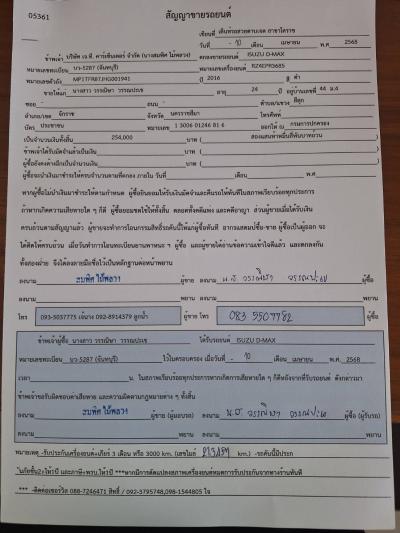 05361
สัญญาขายรถยนต์
เขียนที่ เต็นท์รถสวยตาแจค สาขาโคราช
วันที่ - 10 เดือน เมษายน พ.ศ 2568
ข้าพเจ้า บริษัท เจ.ที. คาร์เซ็นเตอร์ จำกัด (นางสมพิศ ไม้พลวง) ตกลงขายรถยนต์ ISUZU D-MAX
หมายเลขทะเบียน บว-5287 (จันทบุรี) หมายเลขเครื่องยนต์ RZ4EPR0685
หมายเลขตัวถัง MP1TFR87JHG001941 ปี 2016 สี ดำ
ขายให้แก่ นางสาว วรรณิษา วรรณประเข อายุ 24 ปี อยู่บ้านเลขที่ 44 ม.4
ซอย - ถนน - ตำบล/แขวง สีสุก
อำเภอ/เขต จักราช จังหวัด นครราชสีมา โทรศัพท์
บัตร ประชาชน หมายเลข 1 3006 01246 81 6 ออกให้ ณ กรมการปกครอง
เป็นจำนวนเงินทั้งสิ้น 254,000 บาท ( สองแสนห้าหมื่นสี่พันบาทถ้วน )
ข้าพเจ้าได้รับมัดจำแล้วเป็นเงิน บาท ( )
ผู้ซื้อยังคงค้างอีกเป็นจำนวนเงิน บาท ( )
ผู้ซื้อจะนำเงินมาชำระให้ครบจำนวนตามที่ตกลง ภายใน วันที่ เดือน พ.ศ
หากผู้ซื้อไม่นำเงินมาชำระให้ตามกำหนด ผู้ซื้อยินยอมให้ริบเงินมัดจำและคืนรถให้ทันทีในสภาพเรียบร้อยทุกประการ
ถ้าหากเกิดความเสียหายใด ๆ ก็ดี ผู้ซื้อยอมชดใช้ให้ทั้งสิ้น ตลอดทั้งคดีแพ่ง และคดีอาญา ส่วนผู้ขายเมื่อได้รับเงิน
ครบถ้วนตามสัญญาแล้ว ผู้ขายจะทำการโอนกรรมสิทธิ์รถคันนี้ให้แก่ผู้ซื้อทันที อากรแสตมป์ซื้อ-ขาย ผู้ซื้อเป็นผู้ออก จะ
ได้คิดให้ครบถ้วน เมื่อวันทำการโอนทะเบียนยานพาหนะ ฯ ผู้ซื้อ และผู้ขายได้อ่านข้อความเข้าใจดีแล้ว และตกลงกัน
ทั้งสองฝ่าย จึงได้ลงลายมือชื่อไว้เป็นหลักฐานต่อหน้าพยาน
ลงนาม สมพิศ ไม้พลวง ผู้ขาย ลงนาม น.ส. วรรณิษา ผู้ซื้อ
ลงนาม พยาน ลงนาม พยาน
โทร 093-5037775 เจ้นาง 092-8914379 ลูกน้ำ ผู้ขาย โทร 083 5507782 ผู้ซื้อ
ข้าพเจ้าผู้ซื้อ นางสาว วรรณิษา วรรณประเข ได้รับรถยนต์ ISUZU D-MAX
หมายเลขทะเบียน บว-5287 (จันทบุรี) ไว้ในครอบครอง เมื่อวันที่ - 10 เดือน เมษายน พ.ศ. 2568
เวลา น. ในสภาพเรียบร้อยทุกประการหากเกิดการเสียหายใด ๆ ก็ดีหลังจากที่รับรถยนต์ ดังกล่าวมา
ข้าพเจ้าขอรับผิดชอบค่าเสียหาย และความผิดตามกฎหมายต่าง ๆ ทั้งสิ้น
ลงนาม สมพิศ ไม้พลวง ผู้ขาย (ผู้มอบรถ) ลงนาม น.ส วรรณิษา ผู้ซื้อ (ผู้รับรถ)
ลงนาม พยาน ลงนาม พยาน
หมายเหตุ -รับประกันเครื่องยนต์+เกียร์ 3 เดือน หรือ 3000 km. (เลขไมล์ km.) -รถคันนี้มีประกั
นภัยชั้น2+ให้1ปี และภาษี+พรบ.ให้1ปี ***หากมีการดัดแปลงสภาพเครื่องยนต์หมดการรับประกันจากทางร้านทันที
*** -ติดต่อเซอร์วิส 088-7246471 สิทธิ์ / 092-3795748,098-1544805 ใจ